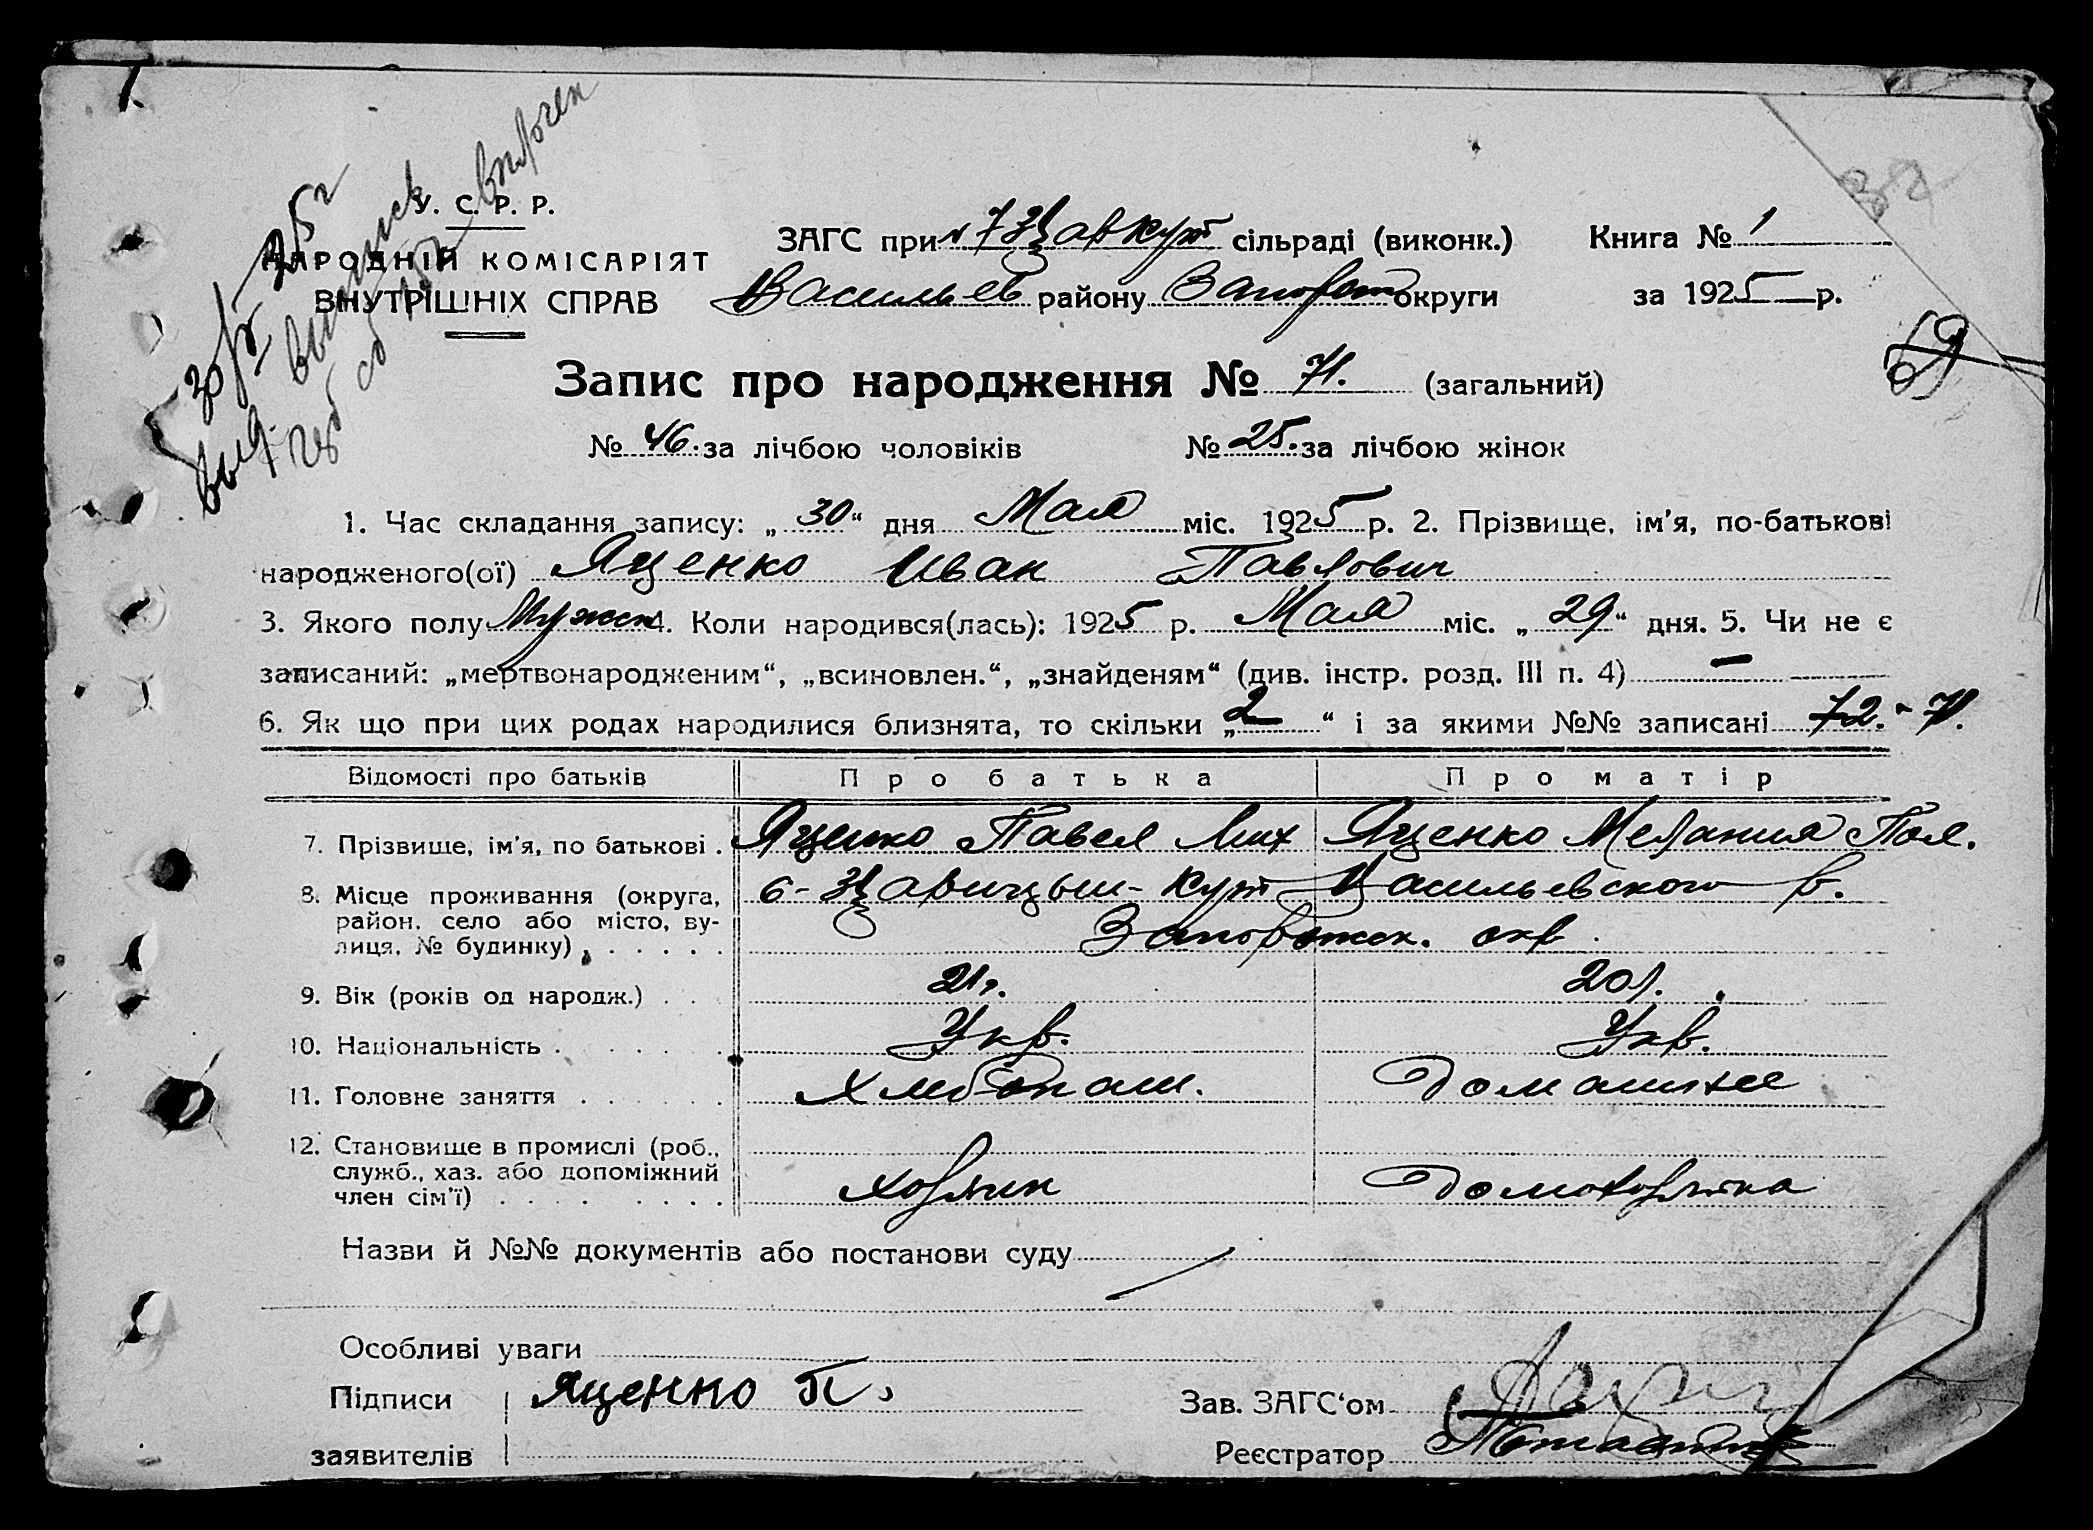 У. С. Р. Р.
НАРОДНІЙ КОМІСАРІЯТ
ВНУТРІШНІХ СПРАВ
ЗАГС при сільраді (виконк.)
Васильев району Запорож округи
Книга № 1
за 1925 р.
69
Запис про народження № 71. (загальний)
№ 46. за лічбою чоловіків № 25. за лічбою жінок
1. Час складання запису: „30“ дня Мая міс. 1925 р. 2. Прізвище, ім'я, по-батькові
народженого(ої) Яценко Иван Павлович
3. Якого полу Мужск 4. Коли народився(лась): 1925 р. Мая міс. „29“ дня. 5. Чи не є
записаний: „мертвонародженим“, „всиновлен.“, „знайденям“ (див. інстр. розд. III п. 4) —
6. Як що при цих родах народилися близнята, то скільки „2“ і за якими №№ записані 72. - 71.
Відомості про батьків Про батька Про матір
7. Прізвище, ім'я, по батькові . Яценко Павел Мих Яценко Мелания Пол.
8. Місце проживання (округа,
район, село або місто, ву-
лиця, № будинку) . . . . . .
Васильевского р.
Запорожск. окр
9. Вік (років од народж.) . . . 21 г. 20 л.
10. Національність . . . . . . Укр. Укр.
11. Головне заняття . . . . . . Хлебопаш. Домашнее
12. Становище в промислі (роб.,
служб., хаз. або допоміжний
член сім'ї) . . . . . . . . Хозяин Домохозяйка
Назви й №№ документів або постанови суду
Особливі уваги
Підписи
заявителів
Яценко П.
Зав. ЗАГС'ом
Реєстратор